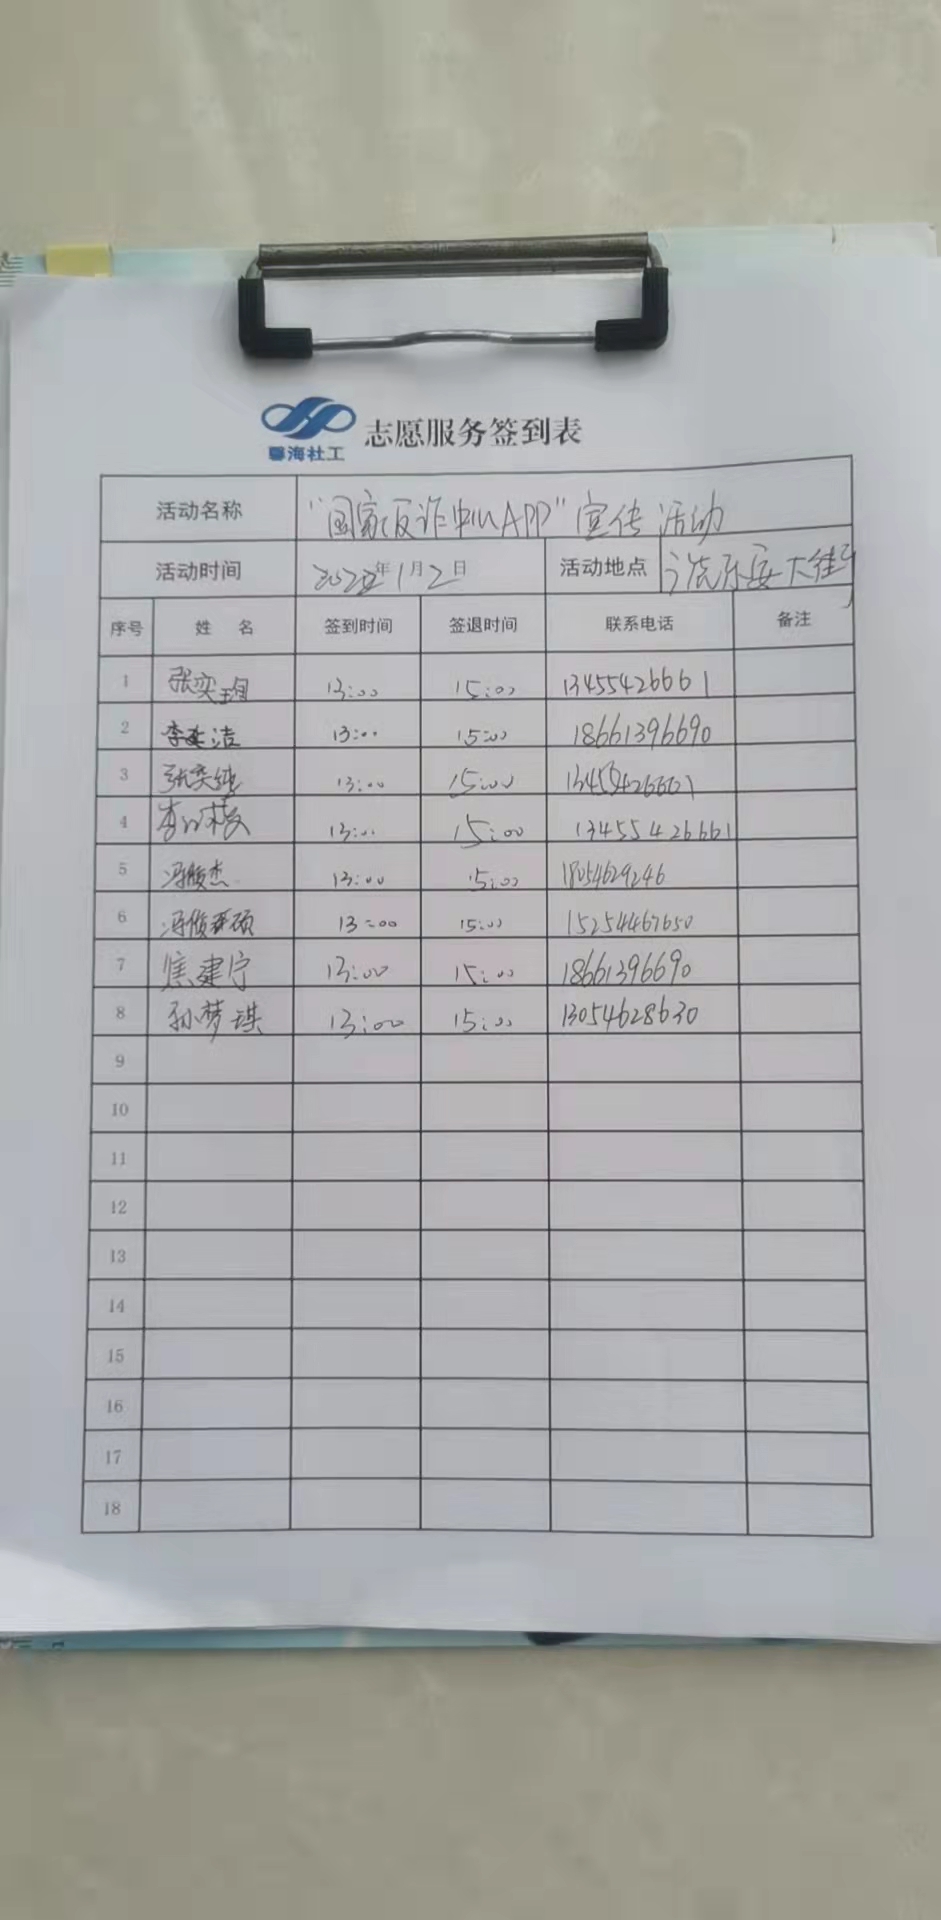 馨海社工 志愿服务签到表
活动名称 "国家反诈中心APP"宣传活动
活动时间 2022年1月2日 活动地点 广饶乐安大街
序号 姓 名 签到时间 签退时间 联系电话 备注
1 张奕珺 13:00 15:00 13455426661
2 李廷洁 13:00 15:00 18661396690
3 张奕纯 13:00 15:00 13455426661
4 13:00 15:00 13455426661
5 冯俊杰 13:00 15:00 18054629246
6 冯俊硕 13:00 15:00 15254467650
7 焦建宁 13:00 15:00 18661396690
8 孙梦琪 13:00 15:00 13054628630
9
10
11
12
13
14
15
16
17
18